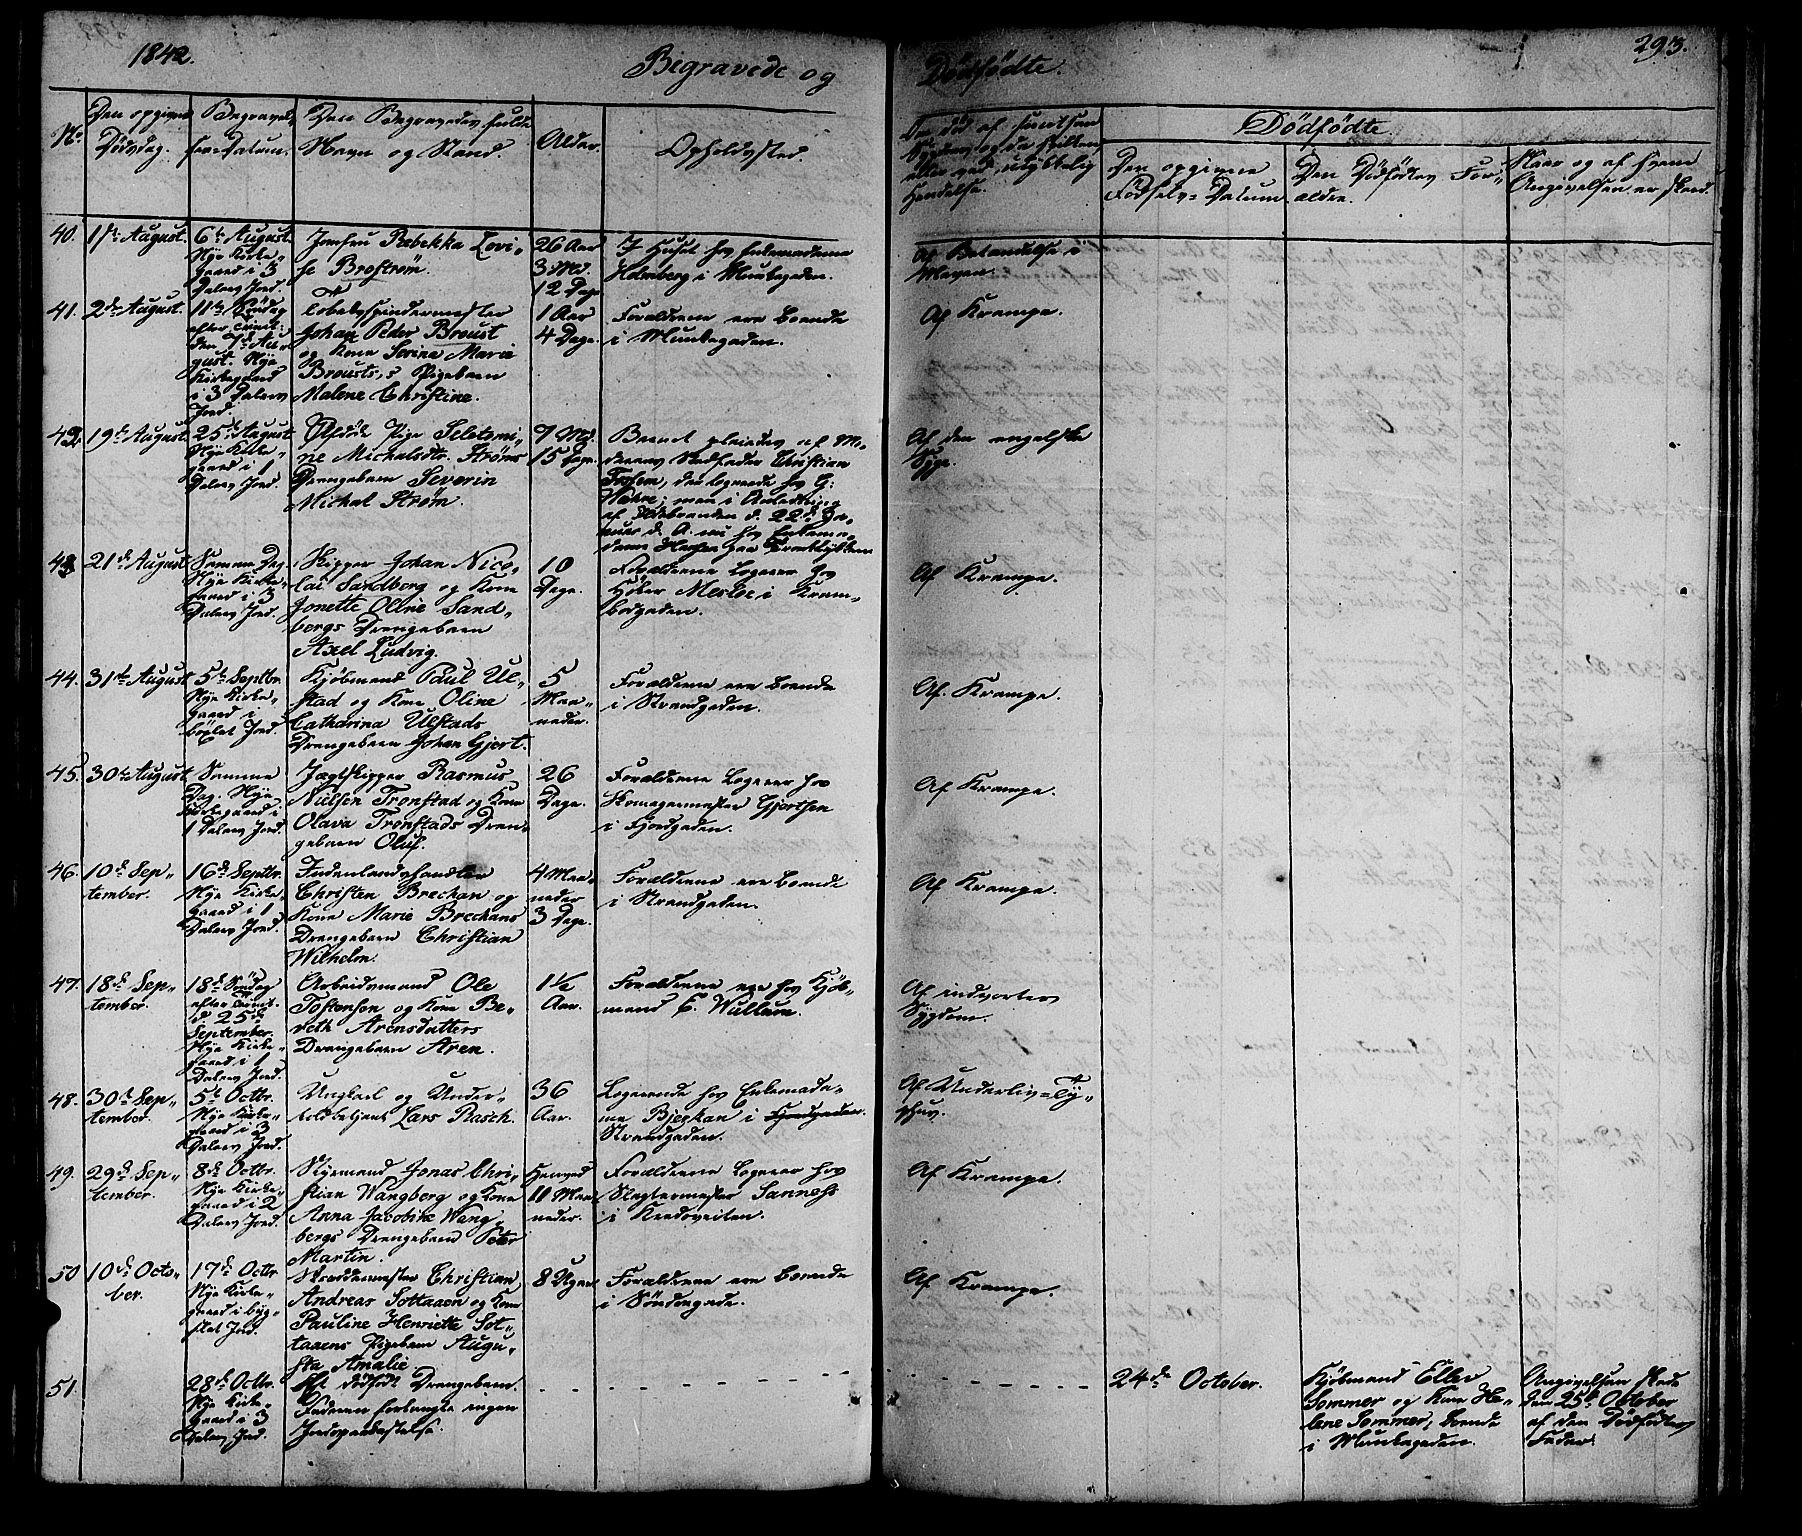 1842.
Begravede og
Dödfödte.
293.
No.
Den opgivne
Dödsdag.
Begravel-
ses-Datum.
Den Begravedes fulde
Navn og Stand.
Alder.
Opholdssted.
Om död af smitsom
Sygdom og da hvilken
eller ved ulykkelig
Hendelse.
Dödfödte.
Den opgivne
Födsels-Datum
Den Dödfödtes For-
ældre.
Naar og af hvem
Angivelsen er skeed.
40.
1ste August.
6te August.
Nye Kirke-
gaard i 3
Dalers Jord.
Jomfru Rebekka Lovi-
se Broström.
26 Aar
3 Md.
12 Dage
I Huset hos Enkemadame
Holmberg i Munkegaden.
Af Betændelse i
Maven.
41.
2den August.
11te Söndag
efter Trinit:
den 7de Au-
gust. Nye
Kirkegaard
i 3 Dalers
Jord.
Tobaksspindermester
Johan Peder Broust
og Kone Serina Marie
Brousts,s Pigebarn
Malene Christine.
1 Aar
4 Dage.
Forældrene ere boende
i Munkegaden.
Af Krampe.
42.
19de August.
25de August
Nye Kirke-
gaard i 1
Dalers Jord.
Pige
ne Michalsdtr. Ströms
Drengebarn Severin
Michal Ström.
7 Md.
15 Dage.
Barnet pleiedes af Mo-
derens Stedfader Christian
Trosem, der logerede hos G:
Wahre; men i Anledning
af Ildebranden d. 22de Ja-
nuar d. A. nu hos Enkema-
dame Hansen paa
Af den engelske
Syge.
43.
21de August
Samme Dag
Nye Kirke-
gaard i 3
Dalers Jord.
Skipper Johan Nico-
lai Sandberg og Kone
Jonette Oline Sand-
bergs Drengebarn
Axel Ludvig.
10
Dage.
Forældrene logerer hos
Höker Meslee i Kram-
bodgaden.
Af Krampe.
44.
31te August
5te Septbr.
Nye Kirke-
gaard i
bögslet Jord.
Kjöbmand Paul Ul-
stad og Kone Oline
Catharina Ulstads
Drengebarn Johan Gjert.
5
Maa-
neder.
Forældrene ere boende
i Strandgaden.
Af Krampe.
45.
30te August
Samme
Dag. Nye
Kirkegaard i
1 Dalers Jord.
Jægtskipper Rasmus
Nielsen Tronstad og Kone
Olava Tronstads Dren-
gebarn Oluf.
26
Dage.
Forældrene logerer hos
Skomagermester Gjertsen
i Fjordgaden.
Af Krampe.
46.
10de Sep-
tember.
16de Septbr.
Nye Kirke-
gaard i 1
Dalers Jord.
Indenlandshandler
Christen Brechan og
Kone Marie Brechans
Drengebarn Christian
Wilhelm.
4 Maa-
neder
3 Dage.
Forældrene ere boende
i Strandgaden.
Af Krampe.
47.
18de Sep-
tember.
18de Söndag
efter Trinit:
d 25de
September.
Nye Kirke-
gaard i 1
Dalers Jord.
Arbeidsmand Ole
Tostensen og Kone Be-
reth Arensdatters
Drengebarn Aren.
1½
Aar.
Forældrene ere hos Kjöb-
mand E. Wullum.
Af indvortes
Sygdom.
48.
30te Sep-
tember.
5te Octbr.
Nye Kirke-
gaard i 3
Dalers Jord.
Ungkarl og Under-
toldbetjent Lars Rasch.
36
Aar.
Logerende hos Enkemada-
me Bjerkan i Fjordgaden.
Strandgaden.
Af Underlivs-Ty-
phus.
49.
29de Sep-
tember.
8de Octbr.
Nye Kirke-
gaard i 2
Dalers Jord.
Styrmand Jonas Chri-
stian Wangberg og Kone
Anna Jacobine Wang-
bergs Drengebarn Peter
Martin.
Henved
11 Maa-
neder.
Forældrene logerer hos
Slagtermester Sanness
i Kredsveiten.
Af Krampe.
50
10de Octo-
ber.
17de Octbr
Nye Kirke-
gaard i byg-
slet Jord.
Skræddermester Christian
Andreas Sottaaen og Kone
Pauline Henriette Sot-
taaens Pigebarn Augu-
sta Amalie.
8 Uger
Forældrene ere boende
i Söndregade.
Af Krampe.
51.
28de Octbr.
Nye Kirke-
gaard i 3
Dalers Jord.
Et dödfödt Drengebarn.
Faderen forlangte ingen
Jordpaakastelse.
24de October.
Kjöbmand Eller
Sommer og Kone He-
lene Sommer, boende
i Munkegaden.
Angivelsen skede
den 25de October
af den Dödfödtes
Fader.